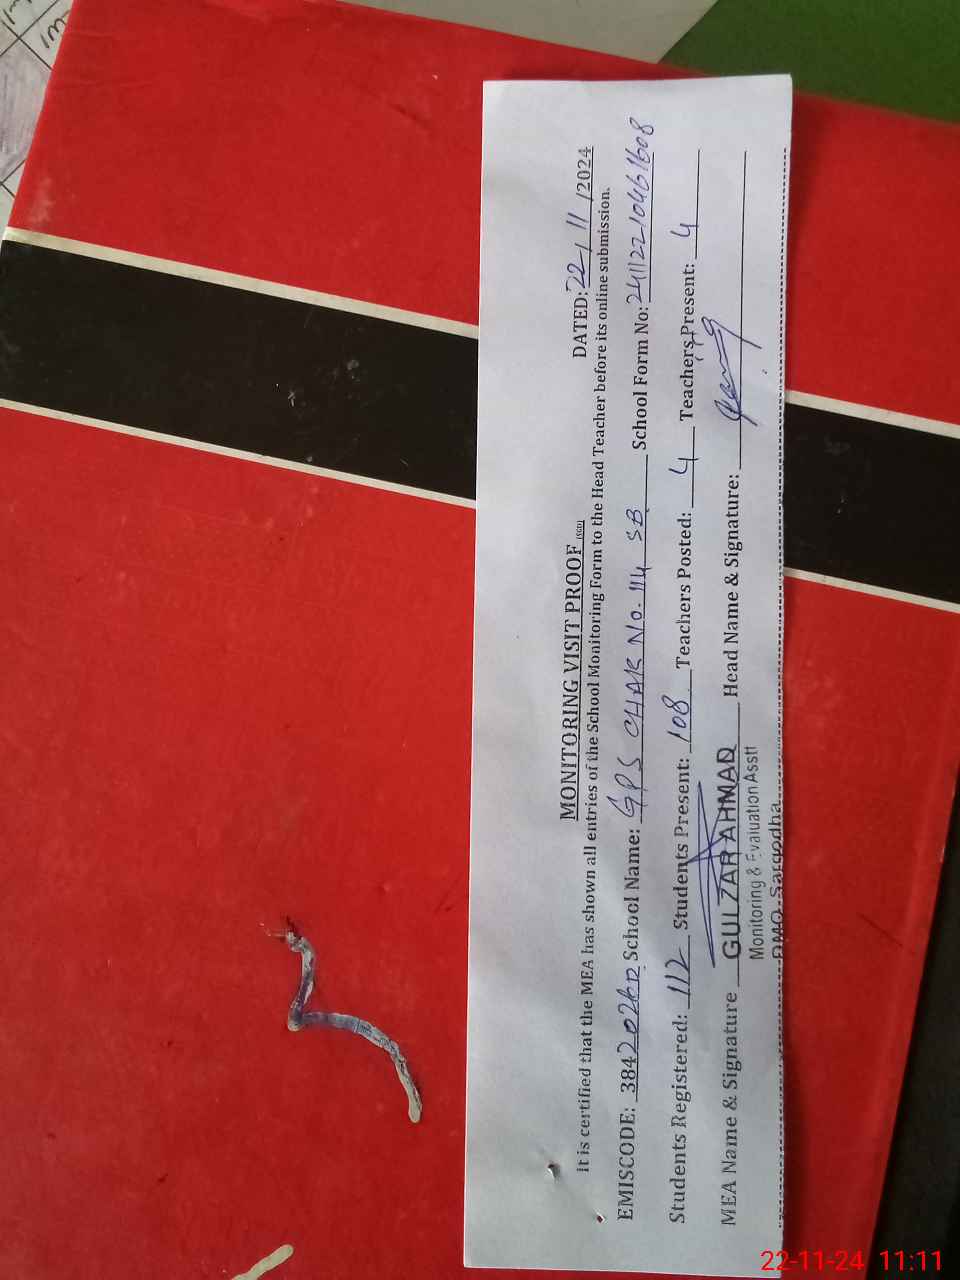 MONITORING VISIT PROOF (SGD)
DATED: 22/11/2024
It is certified that the MEA has shown all entries of the School Monitoring Form to the Head Teacher before its online submission.
EMISCODE: 384202 School Name: GPS CHAK No. 114 SB School Form No: 241122104616608
Students Registered: 112 Students Present: 108 Teachers Posted: 4 Teachers Present: 4
MEA Name & Signature GULZAR AHMAD Head Name & Signature:
Monitoring & Evaluation Asstt
DMO, Sargodha
22-11-24 11:11